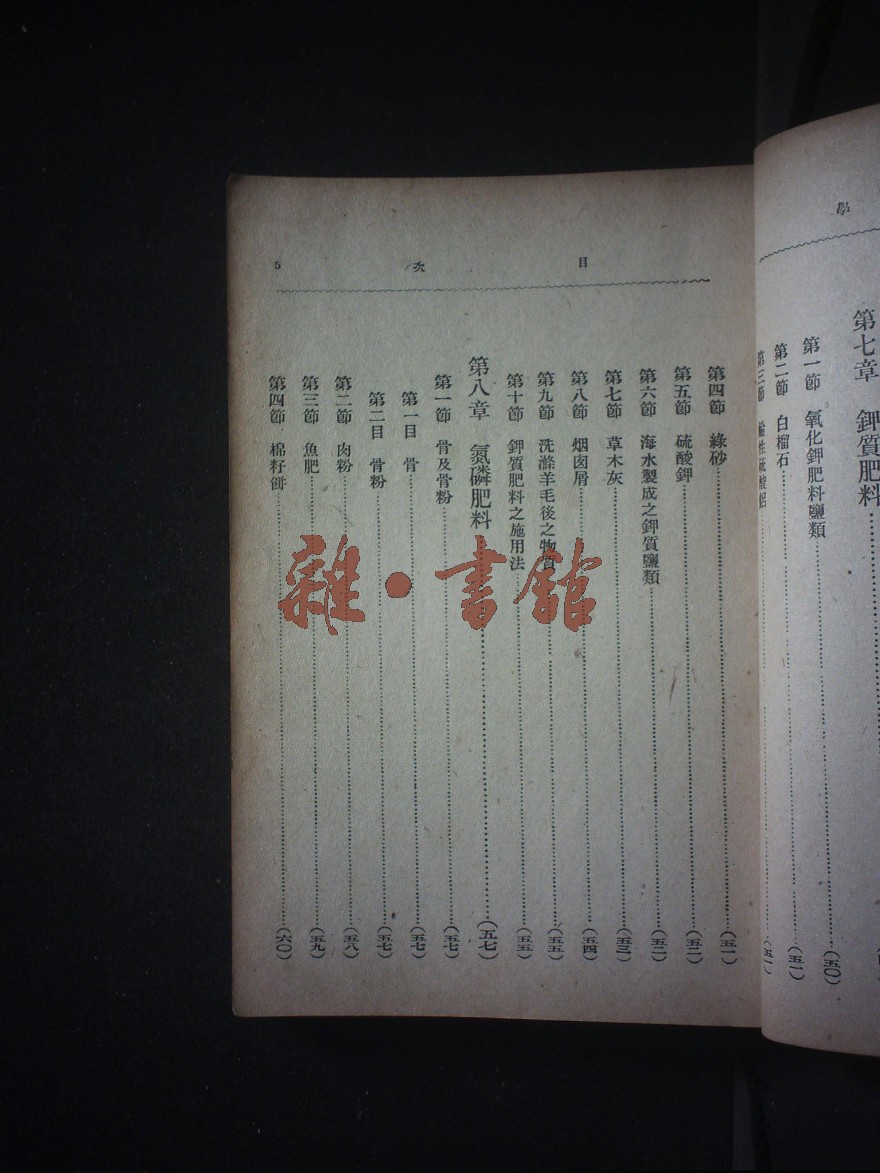 學
第七章　鉀質肥料
第一節　氧化鉀肥料鹽類 (五〇)
第二節　白榴石 (五一)
第三節　鹼性硫酸鋁 (五一)
目　次　5
第四節　綠砂 (五一)
第五節　硫酸鉀 (五二)
第六節　海水製成之鉀質鹽類 (五二)
第七節　草木灰 (五三)
第八節　烟囱屑 (五四)
第九節　洗滌羊毛後之物質 (五五)
第十節　鉀質肥料之施用法 (五五)
第八章　氮磷肥料 (五七)
第一節　骨及骨粉 (五七)
第一目　骨 (五七)
第二目　骨粉 (五七)
第二節　肉粉 (五八)
第三節　魚肥 (五九)
第四節　棉籽餅 (六〇)
雜·書館